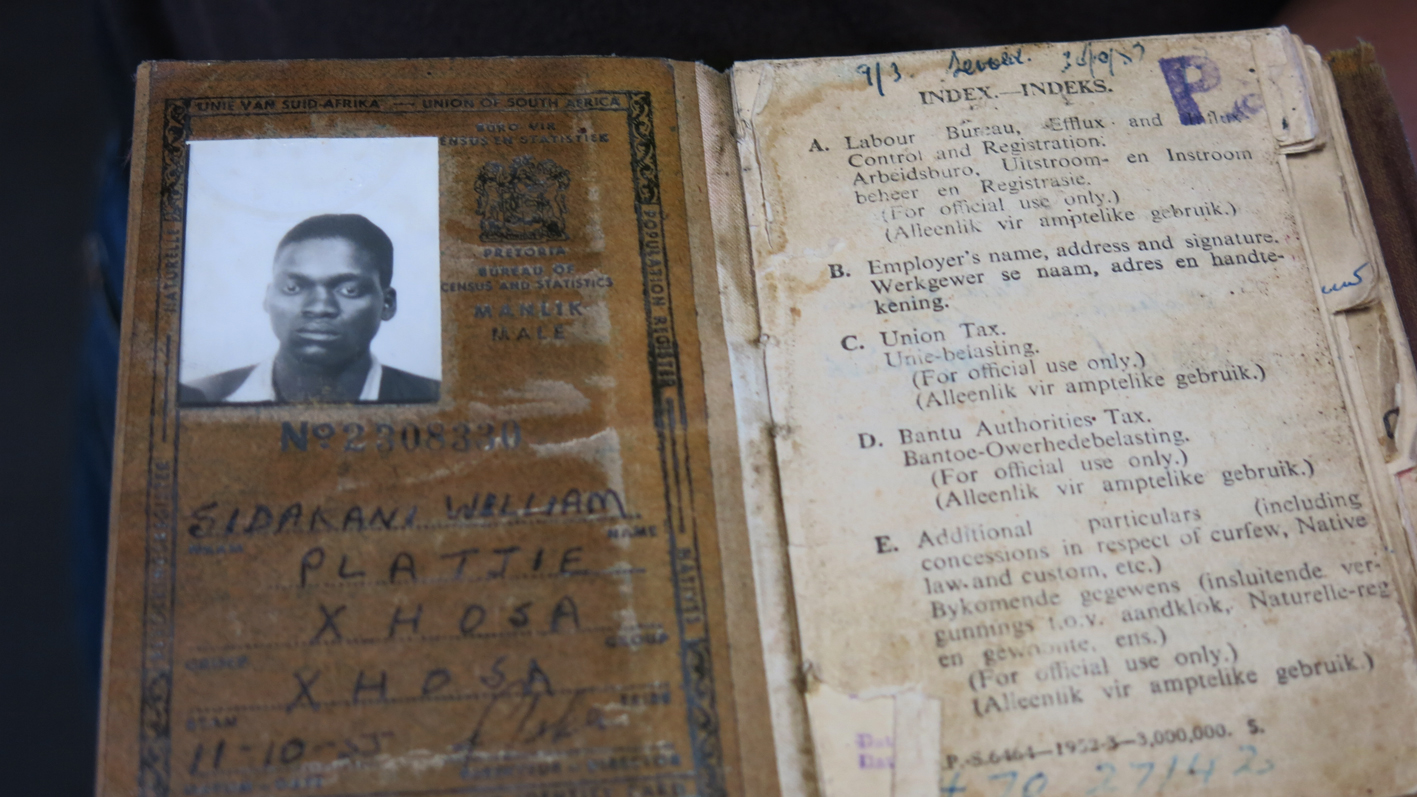 UNIE VAN SUID-AFRIKA — UNION OF SOUTH AFRICA
BURO VIR
SENSUS EN STATISTIEK
PRETORIA
BUREAU OF
CENSUS AND STATISTICS
MANLIK
MALE
NATURELLE
POPULATION REGISTER
NATIVES
No 2308330
SIDAKANI WILLIAM
NAAM NAME
PLATJIE
XHOSA
GROEP GROUP
XHOSA
STAM TRIBE
11-10-55
DIREKTEUR - DIRECTOR
9/3.
P
INDEX.—INDEKS.
A. Labour Bureau, Efflux and Influx
Control and Registration.
Arbeidsburo, Uitstroom- en Instroom
beheer en Registrasie.
(For official use only.)
(Alleenlik vir amptelike gebruik.)
B. Employer's name, address and signature.
Werkgewer se naam, adres en handte-
kening.
C. Union Tax.
Unie-belasting.
(For official use only.)
(Alleenlik vir amptelike gebruik.)
D. Bantu Authorities Tax.
Bantoe-Owerhedebelasting.
(For official use only.)
(Alleenlik vir amptelike gebruik.)
E. Additional particulars (including
concessions in respect of curfew, Native
law and custom, etc.)
Bykomende gegewens (insluitende ver-
gunnings t.o.v. aandklok, Naturelle-reg
en gewoonte, ens.)
(For official use only.)
(Alleenlik vir amptelike gebruik.)
Dat
Dat
P.-S.6464—1952-3—3,000,000. S.